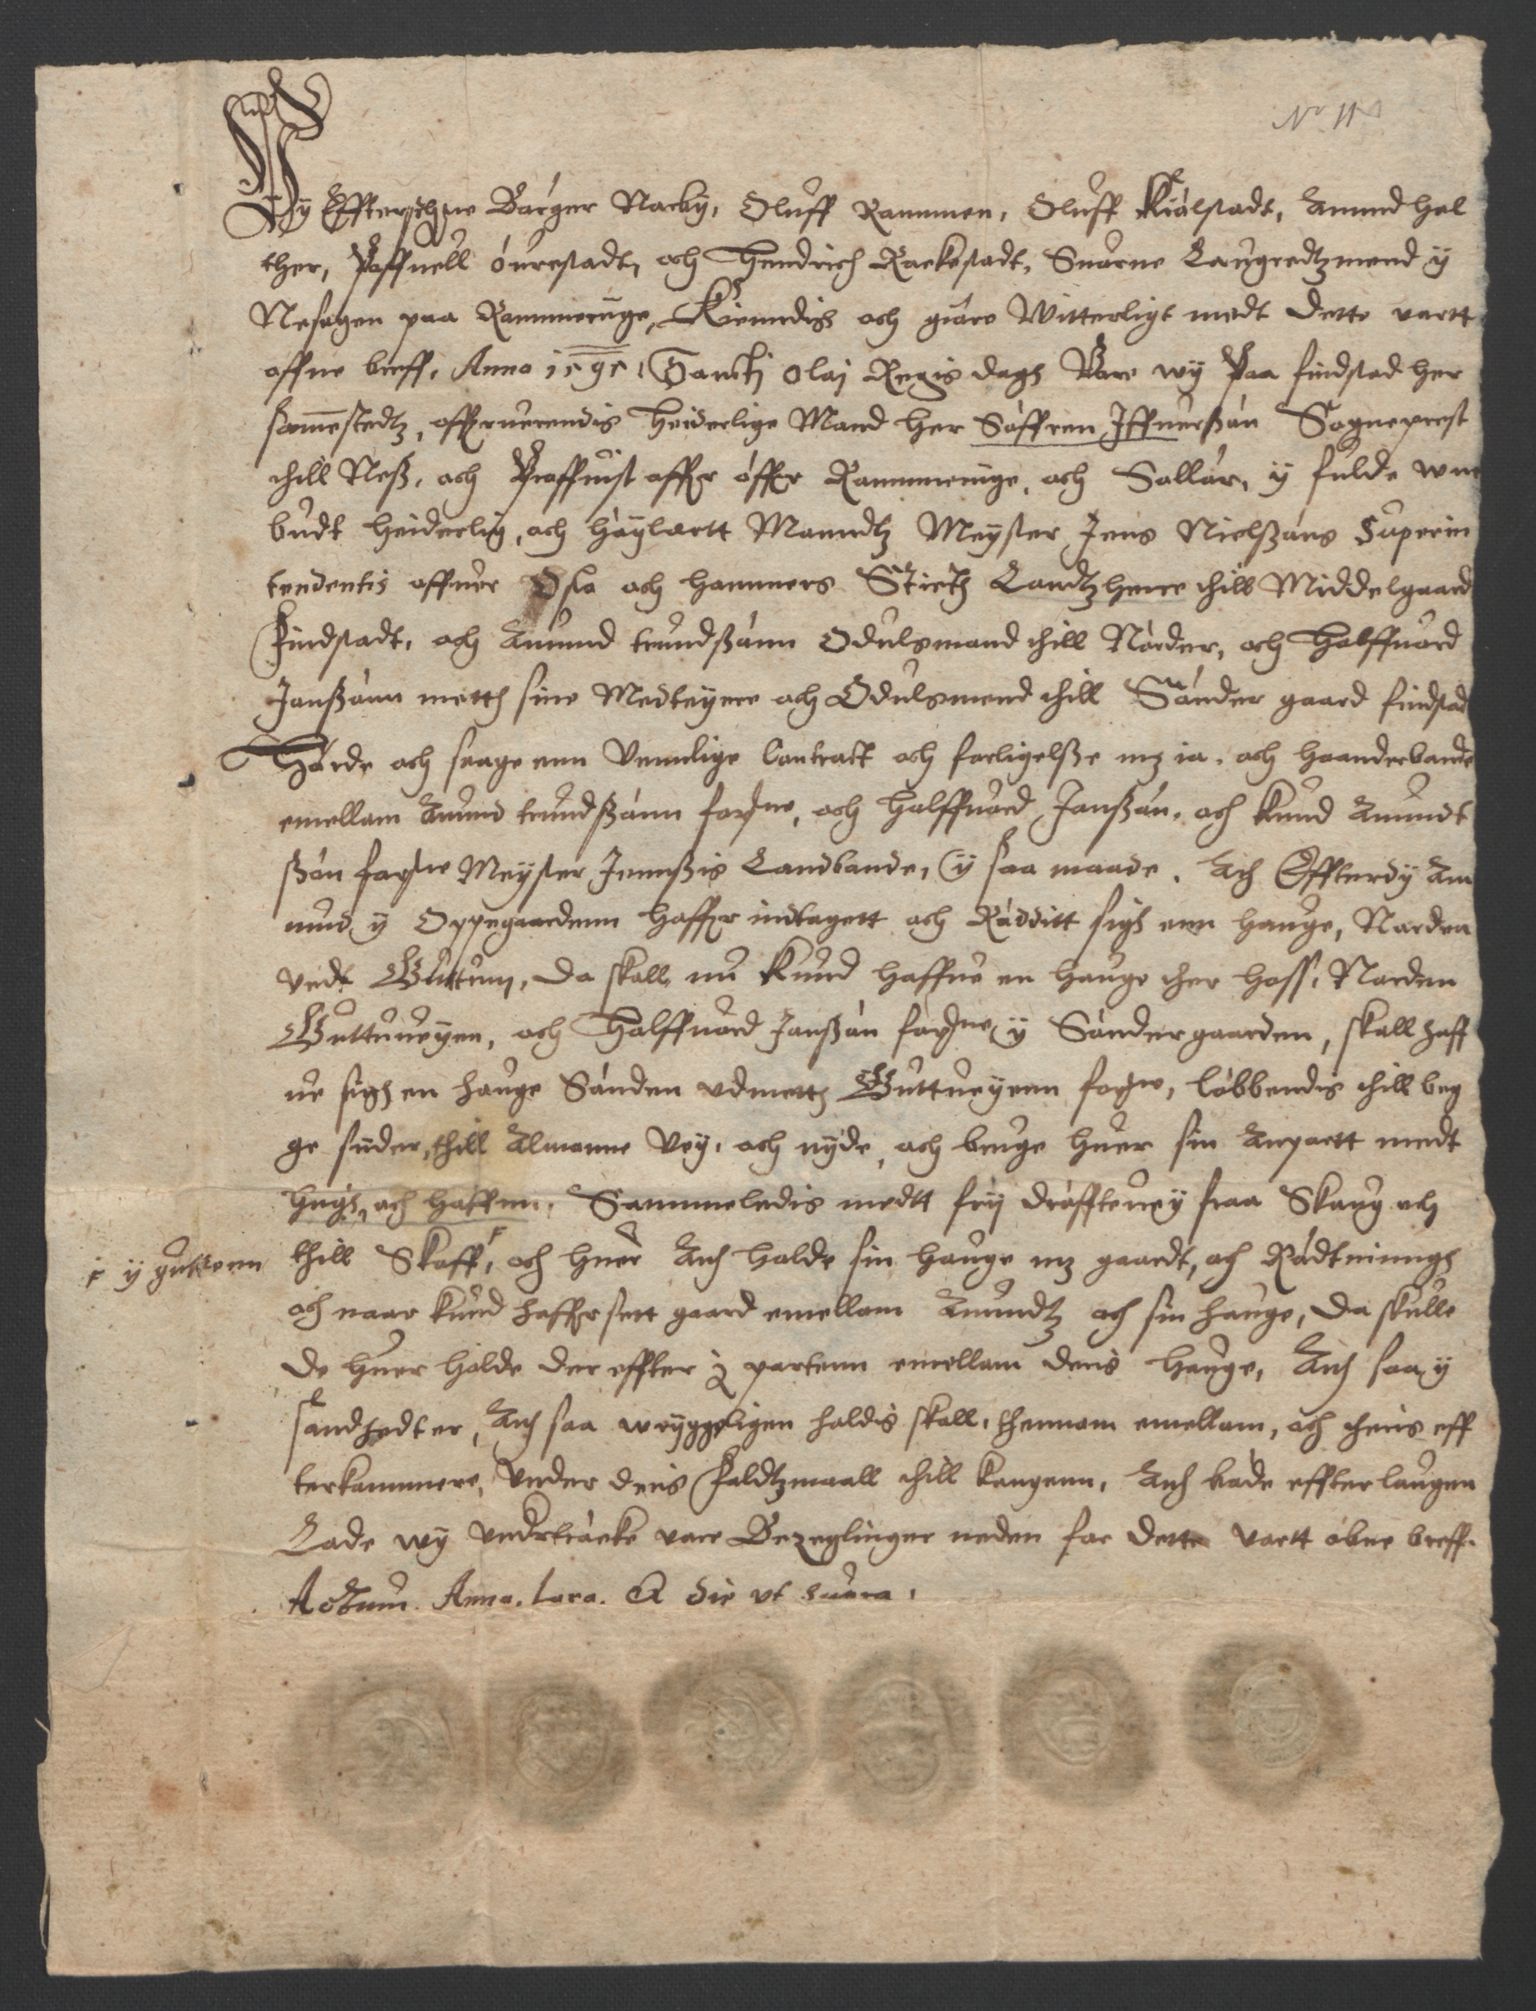 No 11
Wy Effterschne Børger Nackÿ, Oluff Rammen, Oluff Kiølstadt, Amund hol
ther, Poffuell ourestadt, och Hendrich Rackestadt, Suorne Laugredtzmend ÿ
Nesøgen paa Rommeruge, Kienndis och giøre Witterligt medt dette vortt
offne breff, Anno 1591, Sancti Olaj Regis dagh Vare wÿ Paa findstad her
sammestedtz, offueruerendis Heiderlige Mand her Søffren Iffuerßøn Sogneprest
thill Neß, och Proffuist offuer offuer Rommeruge, och Sollør, ÿ fulde
budt heiderlig, och høÿlertt Manndtz Meyster Jens Nielßøns Superin
tendentis offuer Oslo och hammers Sticth Landtzherre thill Middelgaard
findstadt, och Amund trundßønn Odulsmand thill Nørder, och Halffuord
Janßønn metth sine Medteÿere och Odulsmend thill Sønder gaard findstad
Hørde och saage enn Vennlige Contract och forligelße mz ia, och haanderbande
emellom Amund trundßønn forsne, och Halffuord Janßøn, och knud Amundt
ßøn forsne Meyster Jennßis Landbonde, ÿ saa maade. Ath Effterdÿ Am
mud ÿ Oppegaardenn haffuer indtagett och Rødditt sigh enn hauge, Norden
vedt Gutum, da skall nu knud haffue en hauge ther hoss, Norden
Guttuueyen, och Halffuord Janßøn forsne ÿ Søndergaarden, skall haff
ue sigh en hauge Sønden vdmetth Guttueÿenn forsne, løbbendis thill beg
ge sider, thill Almanne Veÿ, och nÿde, och bruge huer sin Anpartt medt
hugh, och haffnn, Sammeledis medtt frÿ drøffteuey fraa Skoug och
thill Skoff, och huer Ath holde sin hauge mz gaardt, och Rødtninngh
ÿ guttenn
och naar knud haffuer sett gaard emellom Amundtz och sin hauge, da skulle
de huer holde der effter ½ partenn emellom deris hauge, Ath saa ÿ
sandhedt er, Ath saa wrÿggeligen holdis skall, thennom emellom, och theris eff
terkommere, Vnder deris faldtzmaall thill kongenn, Ath bøde effter laugen
Lade wÿ vndertrøcke vore Bezeglinger neden for dette vortt obne breff.
Actum. Anno. loco. Et die vt supra.